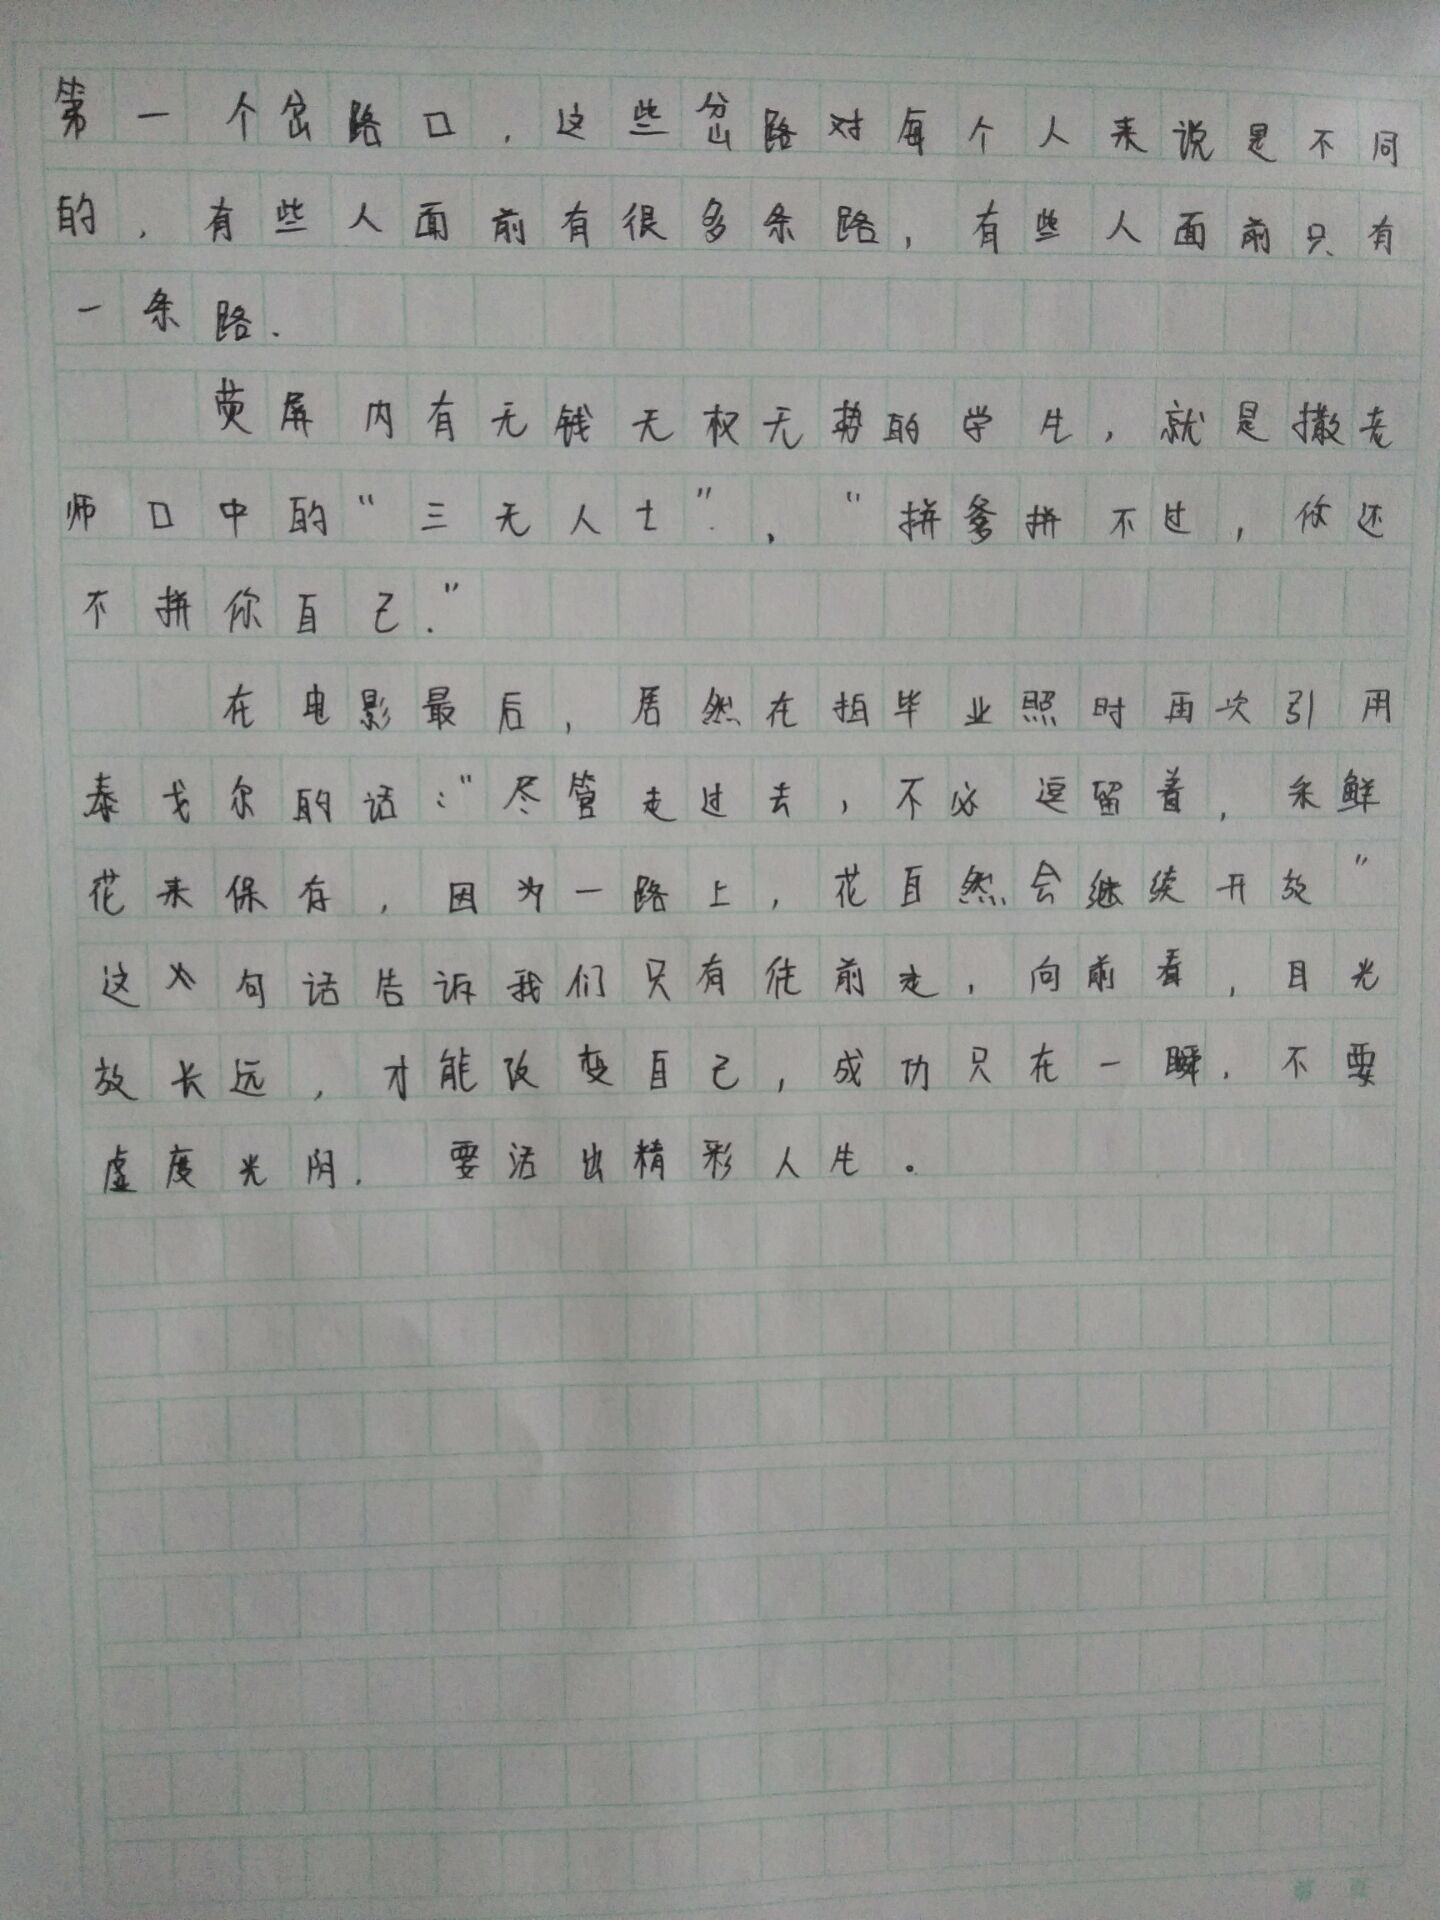 第一个岔路口，这些岔路对每个人来说是不同
的，有些人面前有很多条路，有些人面前只有
一条路.
荧屏内有无钱无权无势的学生，就是撒老
师口中的“三无人士”，“拼爹拼不过，你还
不拼你自己.”
在电影最后，居然在拍毕业照时再次引用
泰戈尔的话：“尽管走过去，不必逗留着，采鲜
花来保存，因为一路上，花自然会继续开放”
这句话告诉我们只有往前走，向前看，目光
放长远，才能改变自己，成功只在一瞬.不要
虚度光阴.要活出精彩人生。